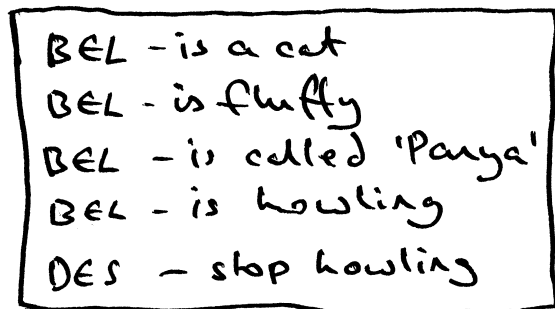 BEL - is a cat
BEL - is fluffy
BEL - is called 'Panya'
BEL - is howling
DES - stop howling